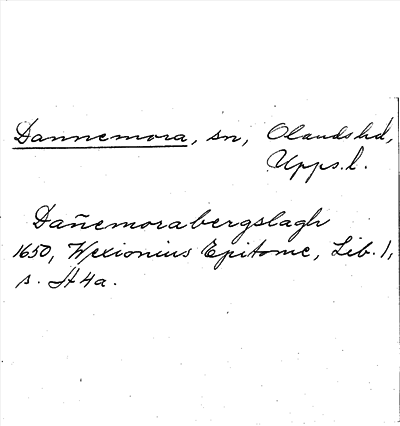 Dannemora, sn, Olandshd,
Upps.l.
Dañemorabergslagh
1650, Wexionius Epitome, Lib. 1,
s. H4a.